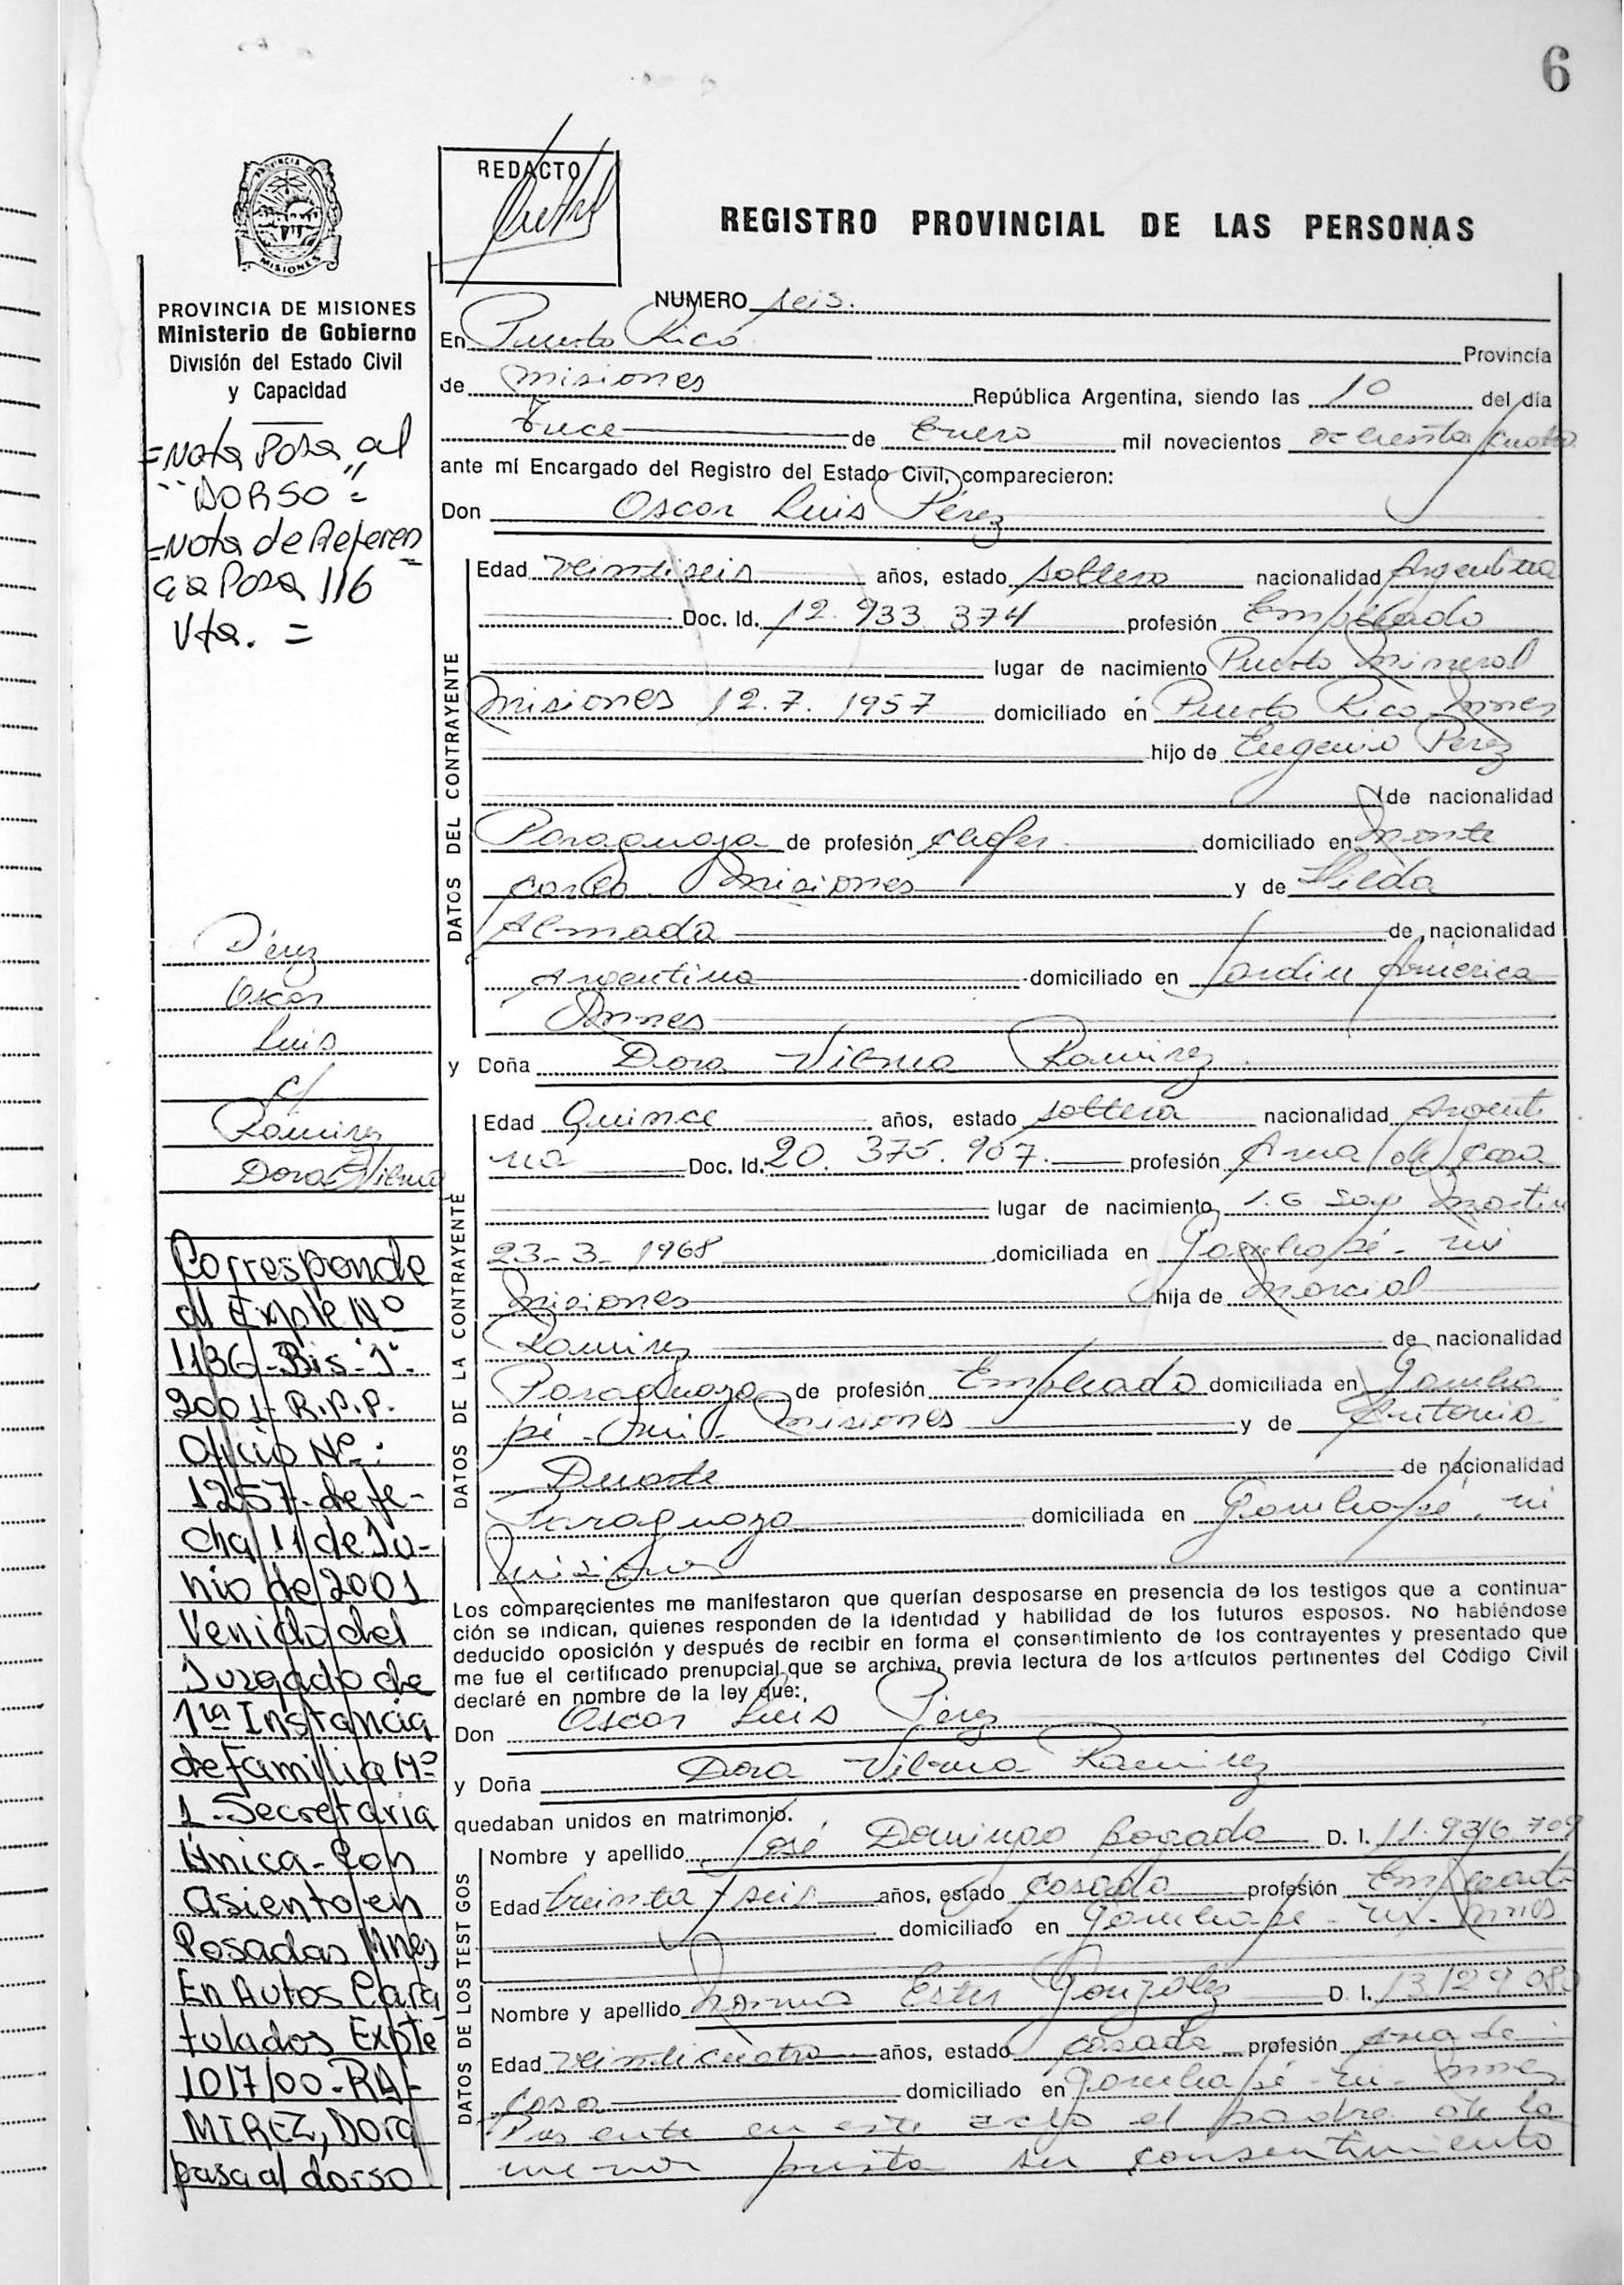 6
REDACTO
REGISTRO PROVINCIAL DE LAS PERSONAS
PROVINCIA DE
MISIONES
PROVINCIA DE MISIONES
Ministerio de Gobierno
División del Estado Civil
y Capacidad
=Nota Pasa al
"DORSO"=
=Nota de Referen
cia Pasa 116
Vta. =
Pérez
Oscar
Luis
c/
Ramirez
Dora Vilma
Corresponde
al Expte Nº
1136-Bis-"J"-
2001-R.P.P.
Oficio Nº:
1257-de fe-
cha 11 de Ju-
nio de 2001
Venido del
Juzgado de
1ra Instancia
de familia Nº
1-Secretaria
Única-Con
asiento en
Posadas Mnes
En Autos Cara
tulados Expte
1017/00-RA-
MIREZ, Dora
pasa al dorso
NUMERO seis.
En Puerto Rico Provincia
de misiones República Argentina, siendo las 10 del día
Trece de Enero mil novecientos ochenta y cuatro
ante mí Encargado del Registro del Estado Civil, comparecieron:
Don Oscar Luis Pérez
DATOS DEL CONTRAYENTE
Edad veintiseis años, estado soltero nacionalidad Argentina
Doc. Id. 12.933.374 profesión Empleado
lugar de nacimiento Puerto Mineral
misiones 12.7.1957 domiciliado en Puerto Rico Mnes
hijo de Eugenio Perez
de nacionalidad
Paraguaya de profesión chofer domiciliado en Monte
carlo Misiones y de Hilda
Almada de nacionalidad
Argentina domiciliado en Jardin América
Mnes
y Doña Dora Vilma Ramirez
DATOS DE LA CONTRAYENTE
Edad Quince años, estado soltera nacionalidad Argenti
na Doc. Id. 20.375.907. profesión Ama de casa
lugar de nacimiento L.G San Martin
23-3-1968 domiciliada en Garuhapé-mi
Misiones hija de Marcial
Ramirez de nacionalidad
Paraguaya de profesión Empleado domiciliada en Garuha
pé-mi-Misiones y de Antonia
Duarte de nacionalidad
Paraguaya domiciliada en Garuhapé-mi
Misiones
Los comparecientes me manifestaron que querían desposarse en presencia de los testigos que a continua-
ción se indican, quienes responden de la identidad y habilidad de los futuros esposos. No habiéndose
deducido oposición y después de recibir en forma el consentimiento de los contrayentes y presentado que
me fue el certificado prenupcial que se archiva, previa lectura de los artículos pertinentes del Código Civil
declaré en nombre de la ley que:
Don Oscar Luis Pérez
y Doña Dora Vilma Ramirez
quedaban unidos en matrimonio.
DATOS DE LOS TESTIGOS
Nombre y apellido José Domingo Bogado D. I. 11.936.709
Edad treinta y seis años, estado casado profesión Empleado
domiciliado en Garuhapé-mi-Mnes
Nombre y apellido Norma Ester González D. I. 13.129.080
Edad veinticuatro años, estado casada profesión Ama de
casa domiciliado en Garuhapé-mi-Mnes
Presente en este acto el padre de la
menor presta su consentimiento